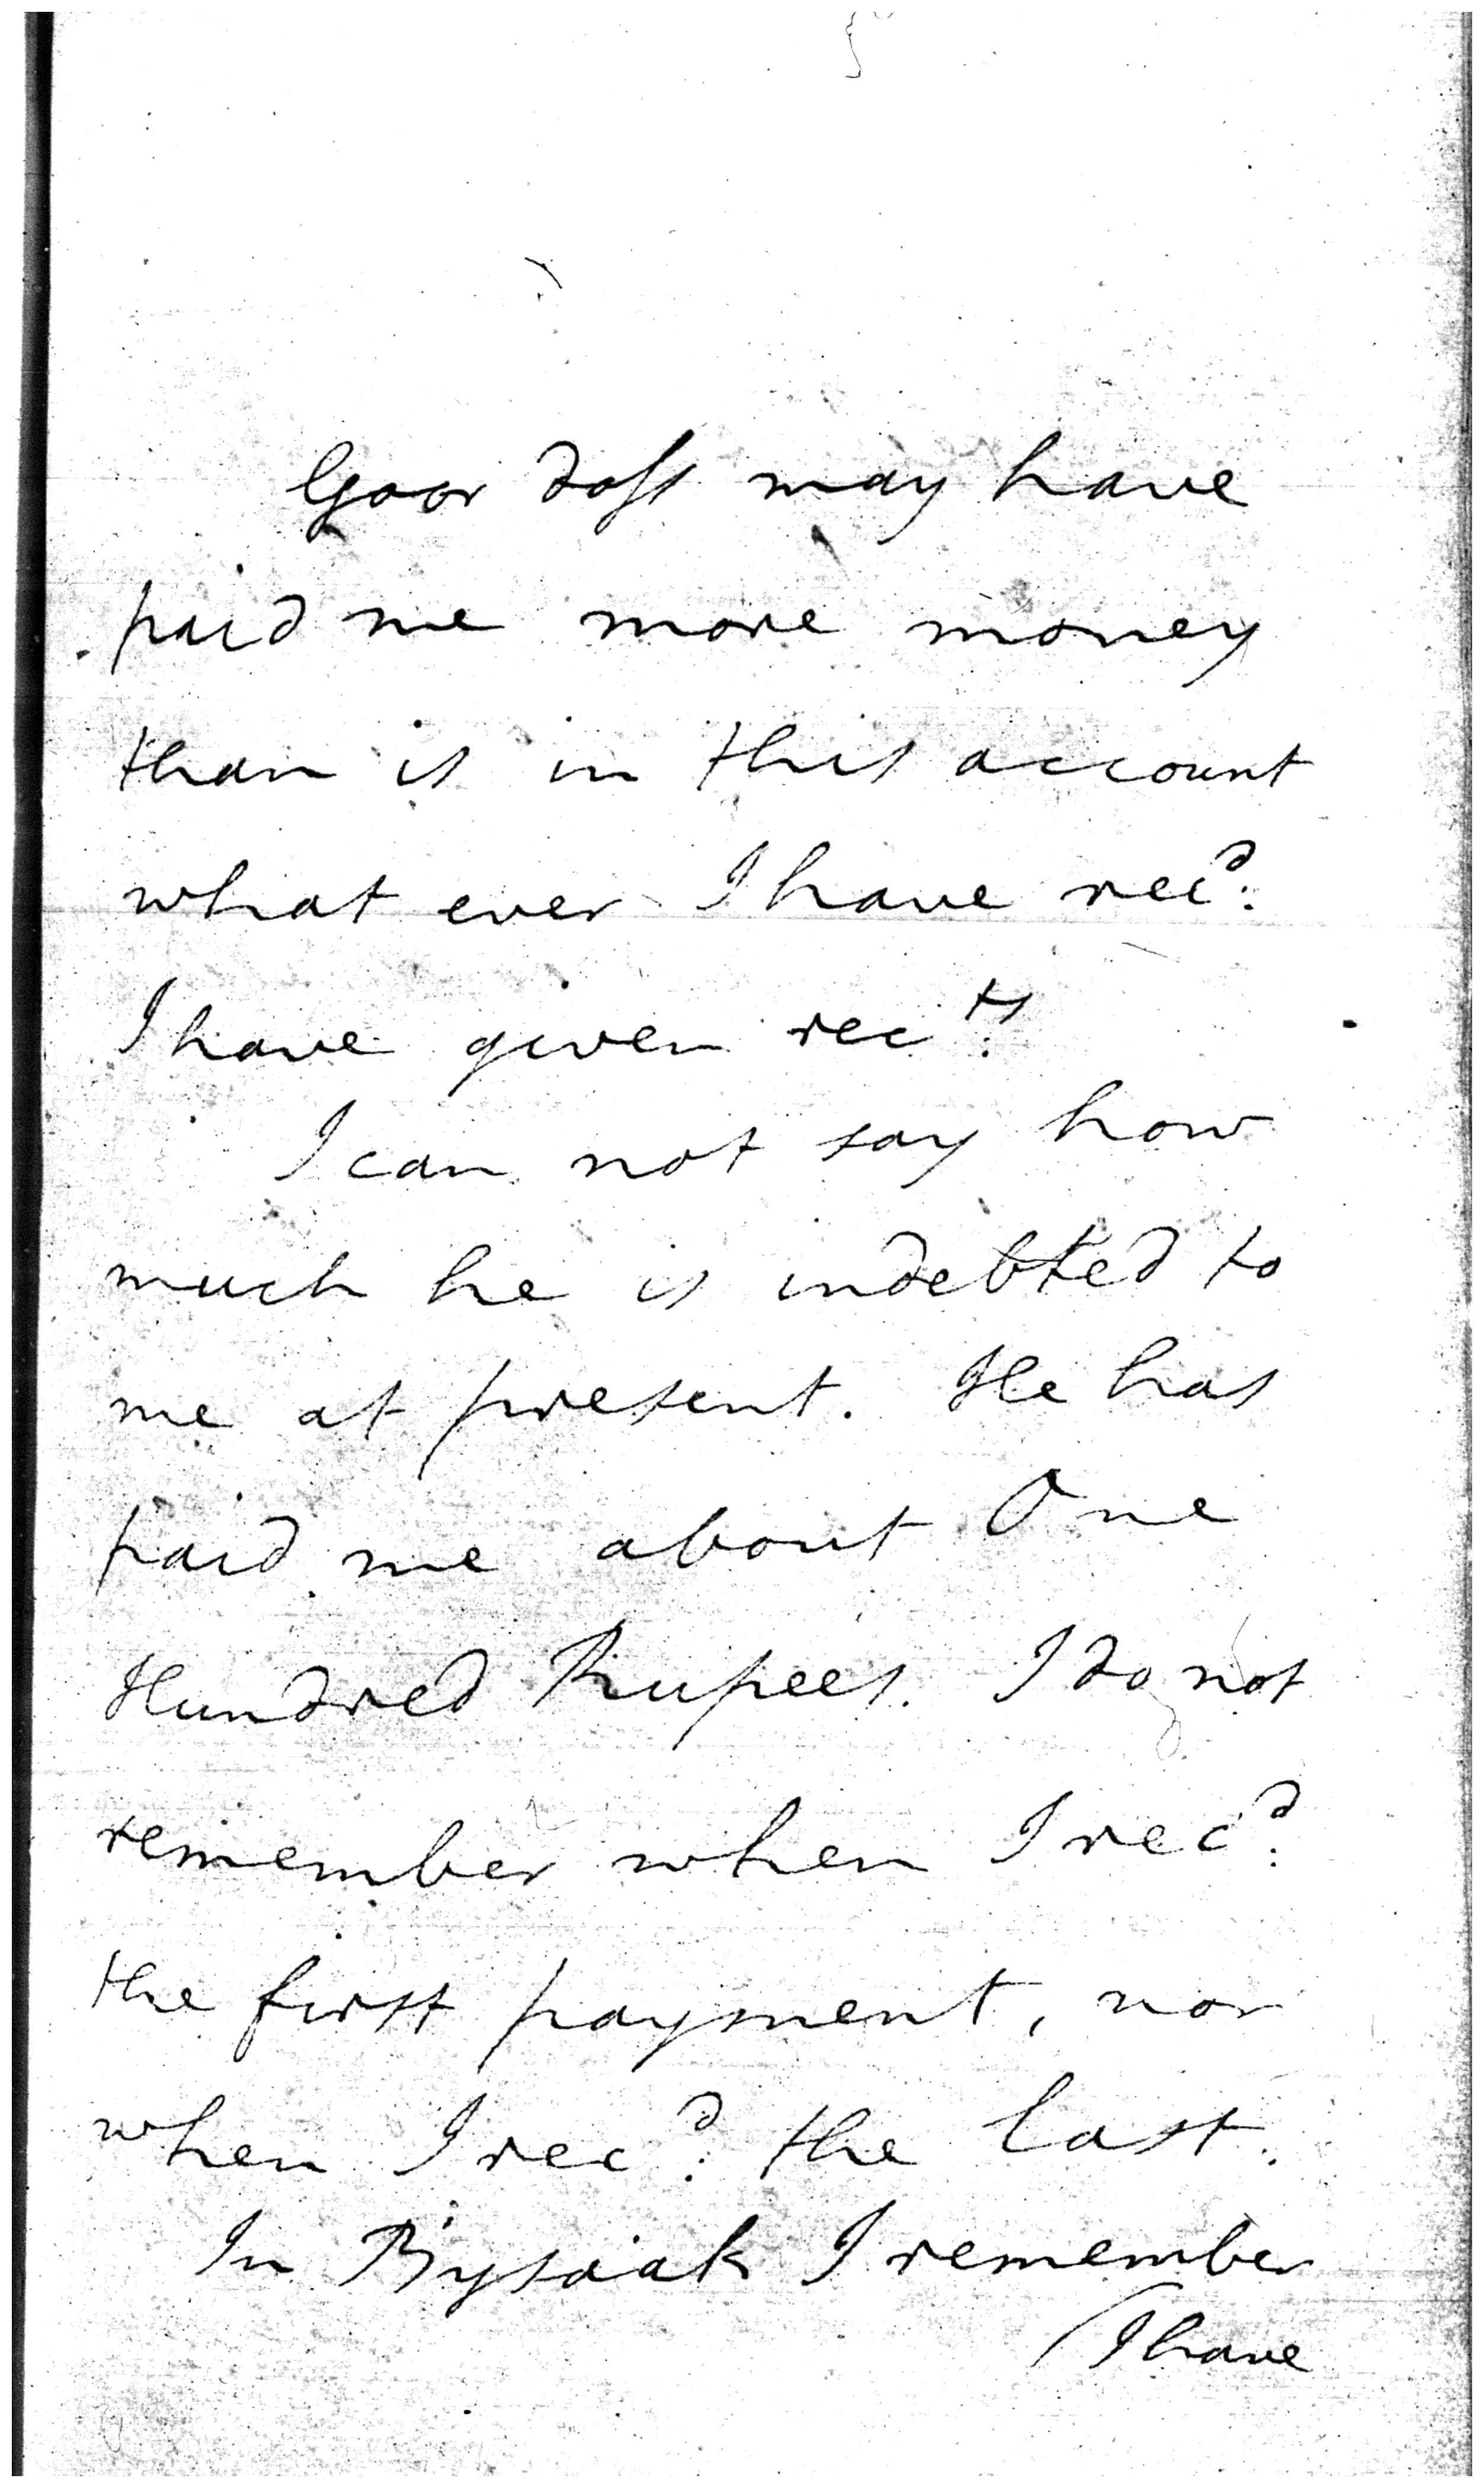 Goor doss may have
paid me more money
than is in this account
what ever I have rec^d.
I have given rec^ts.
I can not say how
much he is indebted to
me at present. He has
paid me about One
Hundred Rupees. I do not
remember when I rec^d.
the first payment, nor
when I rec^d. the last.
In Bysaak I remember
I have